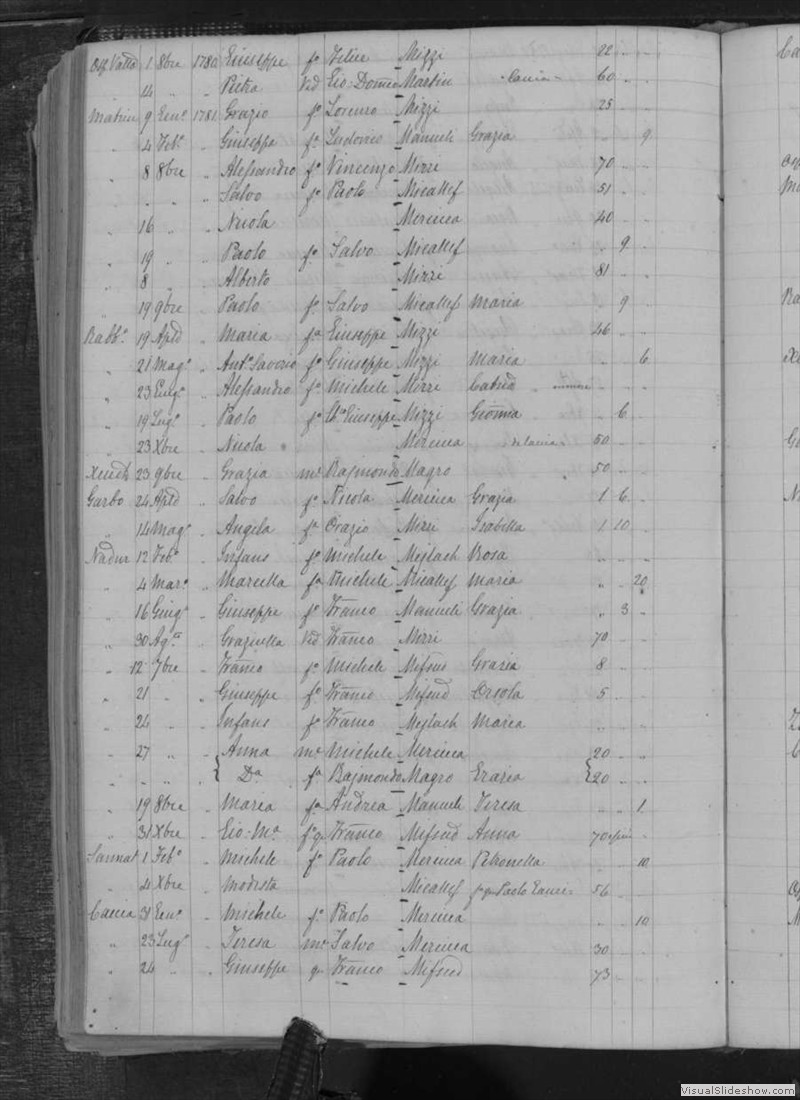 1 8bre 1780 Giuseppe fo Felice Mizzi 22 " "
14 " " Pietra Vid Gio: Domco Martin Caccia 60 " "
Matrice 9 Geno 1781 Grazio fo Lorenzo Mizzi 25 " "
" 4 Febo " Giuseppe fo Ludovico Manueli Grazia " " 9
" 8 8bre " Alessandro fo Vincenzo Mizzi 70 " "
" " " " Salvo fo Paolo Micallef 51 " "
" 16 " " Nicola Mercieca 40 " "
" 19 " " Paolo fo Salvo Micallef " 9 "
" 8 " " Alberto Mizzi 81 " "
" 19 9bre " Paolo fo Salvo Micallef Maria " 9 "
Rabbo 19 Aple " Maria fa Giuseppe Mizzi 46 " "
" 21 Mago " Anto Saverio fo Giuseppe Mizzi Maria " " 6
" 23 Giugo " Alessandro fo Michele Mizzi
" 19 Lugo " Paolo fo Giuseppe Mizzi Gioanna " 6 "
" 23 Xbre " Nicola Mercieca 50 " "
23 9bre " Grazia me Rajmondo Magro 50 " "
Garbo 24 Aple " Salvo fo Nicola Mercieca Grazia 1 6 "
" 14 Mago " Angela fa Orazio Mizzi Isabella 1 10 "
Nadur 12 Febo " Infans fo Michele Mejlach Rosa " " "
" 4 Maro " Marcella fa Michele Micallef Maria " " 20
" 16 Giugo " Giuseppe fo Franco Manueli Grazia " 3 "
" 30 Ago " Graziella Vid Franco Mizzi 70 " "
" 12 7bre " Franco fo Michele Mifsud Grazia 8 " "
" 21 " " Giuseppe fo Franco Mifsud Orsola 5 " "
" 24 " " Infans fo Franco Mejlach Maria " " "
" 27 " " Anna me Michele Mercieca 20 " "
" " " " Da fa Rajmondo Magro Grazia 20 " "
" 19 8bre " Maria fa Andrea Manueli Teresa " " 1
" 31 Xbre " Gio: Ma fo q Franco Mifsud Anna 70
Sannat 1 Febo " Michele fo Paolo Mercieca Petronella " " 10
" 4 Xbre " Modesta Micallef fa q Paolo 56 " "
Caccia 31 Geno " Michele fo Paolo Mercieca " " 10
" 23 Lugo " Teresa me Salvo Mercieca 30
" 24 " " Giuseppe q Franco Mifsud 73
VisualSlideshow.com